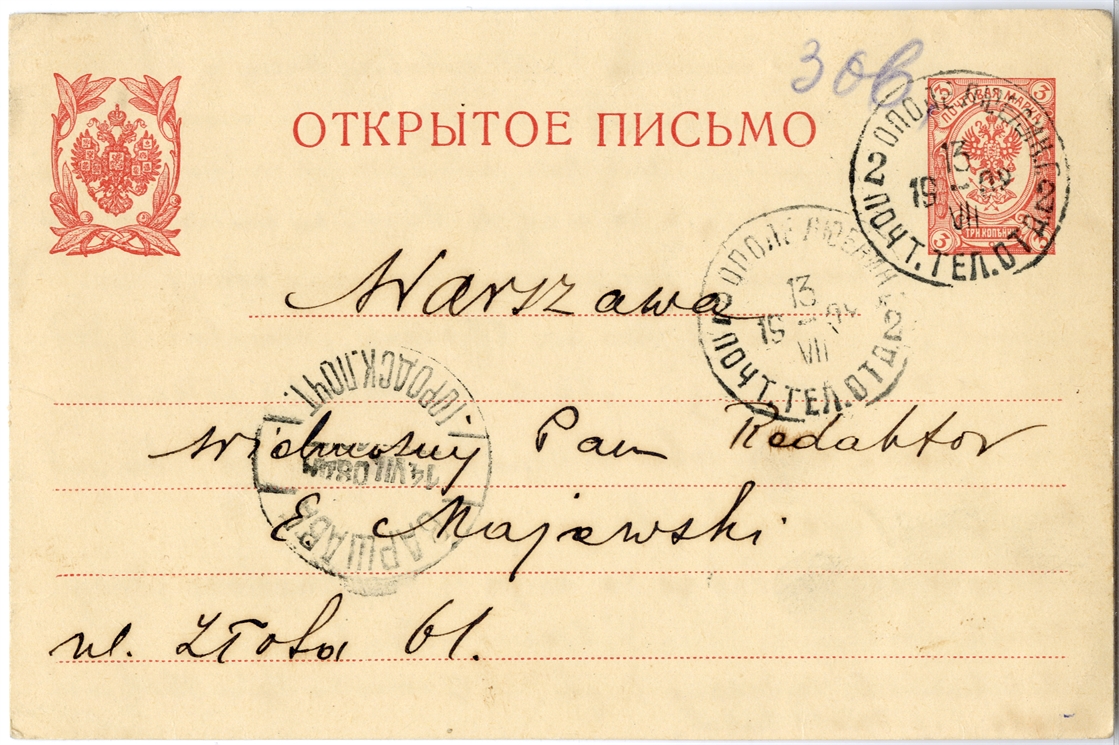 ЗОВ
ОТКРЫТОЕ ПИСЬМО
3 ПОЧТОВАЯ МАРКА 3
3 ТРИ КОПѢЙКИ 3
ОПОЛЕ ЛЮБЛИН. Г.
13
VII
2 ПОЧТ. ТЕЛ. ОТД. 2
Warszawa
ОПОЛЕ ЛЮБЛИН.
13
VII
ПОЧТ. ТЕЛ. ОТД. 2
ГОРОДСК. ПОЧТ.
14 VII 08
ВАРШАВА
Wielmożny Pan Redaktor
E Majewski
ul. Złota 61.